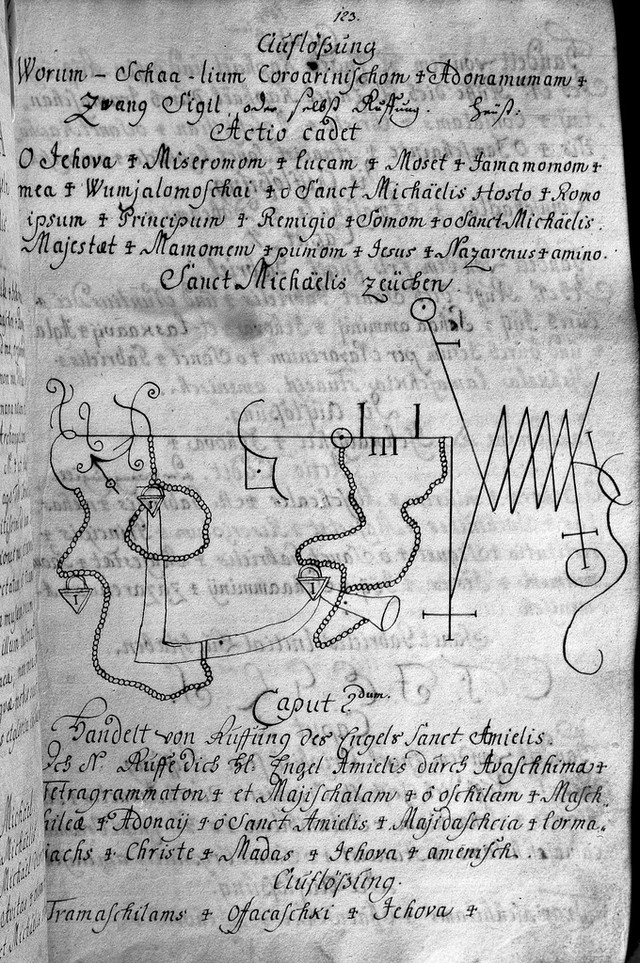 123.
Auflößung
Worum - Schaa - lium Coroarinischom ✝ Adonamumam ✝
Zwang Sigil oder selbst Ruffung. heist:
Actio cadet
O Jehova ✝ Miseromom ✝ lucam ✝ Moset ✝ Jamamomom ✝
mea ✝ Wumjalomoschai ✝ o Sanct Michäelis Hosto ✝ Romo
ipsum ✝ Principum ✝ Remigio ✝ Somom ✝ o Sanct Michäelis.
Majestæt ✝ Mamomem ✝ pumom ✝ Jesus ✝ Nazarenus ✝ amino.
Sanct Michäelis zeüchen.
Caput 2dum.
Handelt von Ruffung des Engels Sanct Amielis.
Ich N. Ruffe dich hl. Engel Amielis durch Avaschhima ✝
Tetragrammaton ✝ et Majischalam ✝ ó oschilam ✝ Masch.
hilea ✝ Adonaij ✝ ó Sanct Amielis ✝ Majidaschcia ✝ lorma.
iachs ✝ Christe ✝ Madas ✝ Jehova ✝ amenisch.
Auflößung.
Tramaschilams ✝ Offacaschki ✝ Jehova ✝